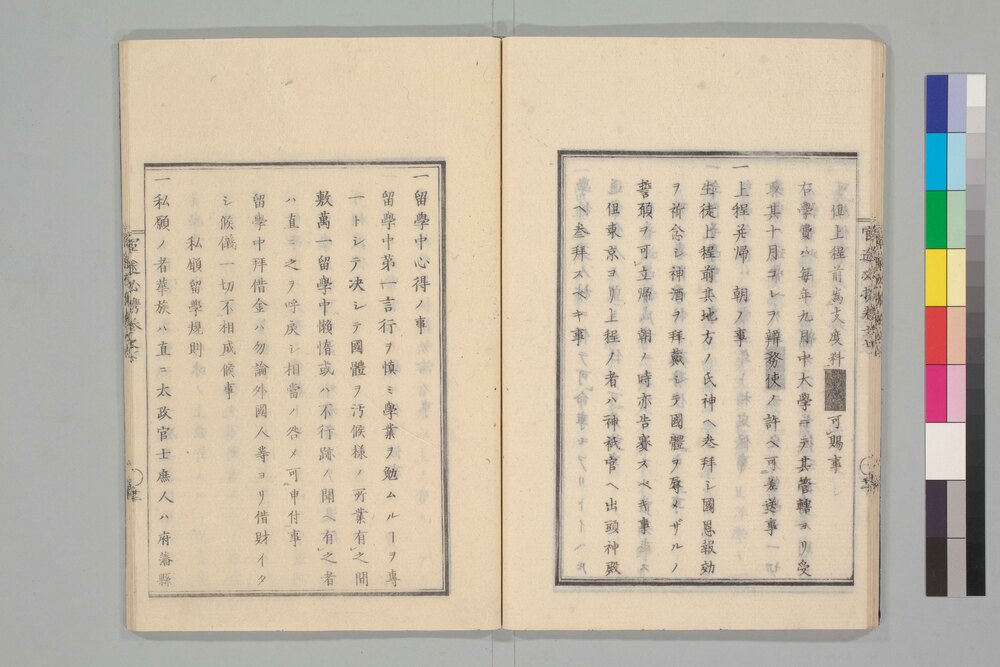 但上程前為支度料　可賜事
右學費ハ毎年九月中大學ニテ其管轄ヨリ受
取其十月コレヲ辨務使ノ許ヘ可差送事
一上程并帰　朝ノ事
生徒上程前其地方ノ氏神ヘ叅拜シ國恩報効
ヲ祈念シ神酒ヲ拜戴シテ國體ヲ辱メザルノ
誓願ヲ可立帰　朝ノ時亦告賽スベキ事
但東京ヨリ上程ノ者ハ神祇官ヘ出頭神殿
ヘ叅拜スベキ事
一留學中心得ノ事
留學中第一言行ヲ慎ミ學業ヲ勉ムルヿヲ專
一トシテ决シテ國體ヲ汚候様ノ所業有之間
敷萬一留學中懶惰或ハ不行跡ノ聞ヘ有之者
ハ直ニ之ヲ呼戻シ相當ノ咎メ可申付事
留學中拜借金ハ勿論外國人等ヨリ借財イタ
シ候儀一切不相成候事
私願留學規則
一私願ノ者華族ハ直ニ太政官士庶人ハ府藩縣